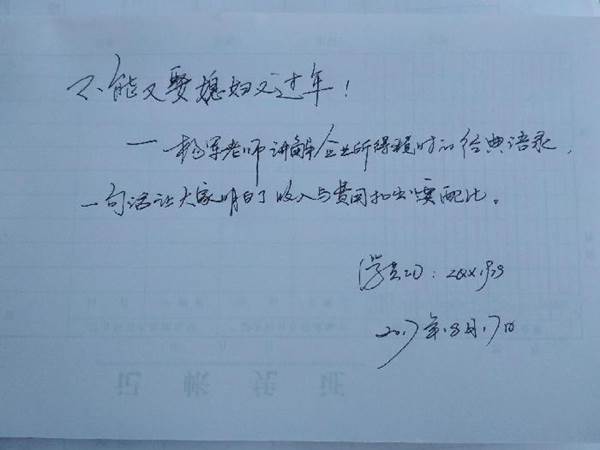 不能又娶媳妇又过年！
——杨军老师讲解企业所得税时的经典语录，
一句话让大家明白了收入与费用扣出要配比。
学员
2017年8月17日
记帐凭证